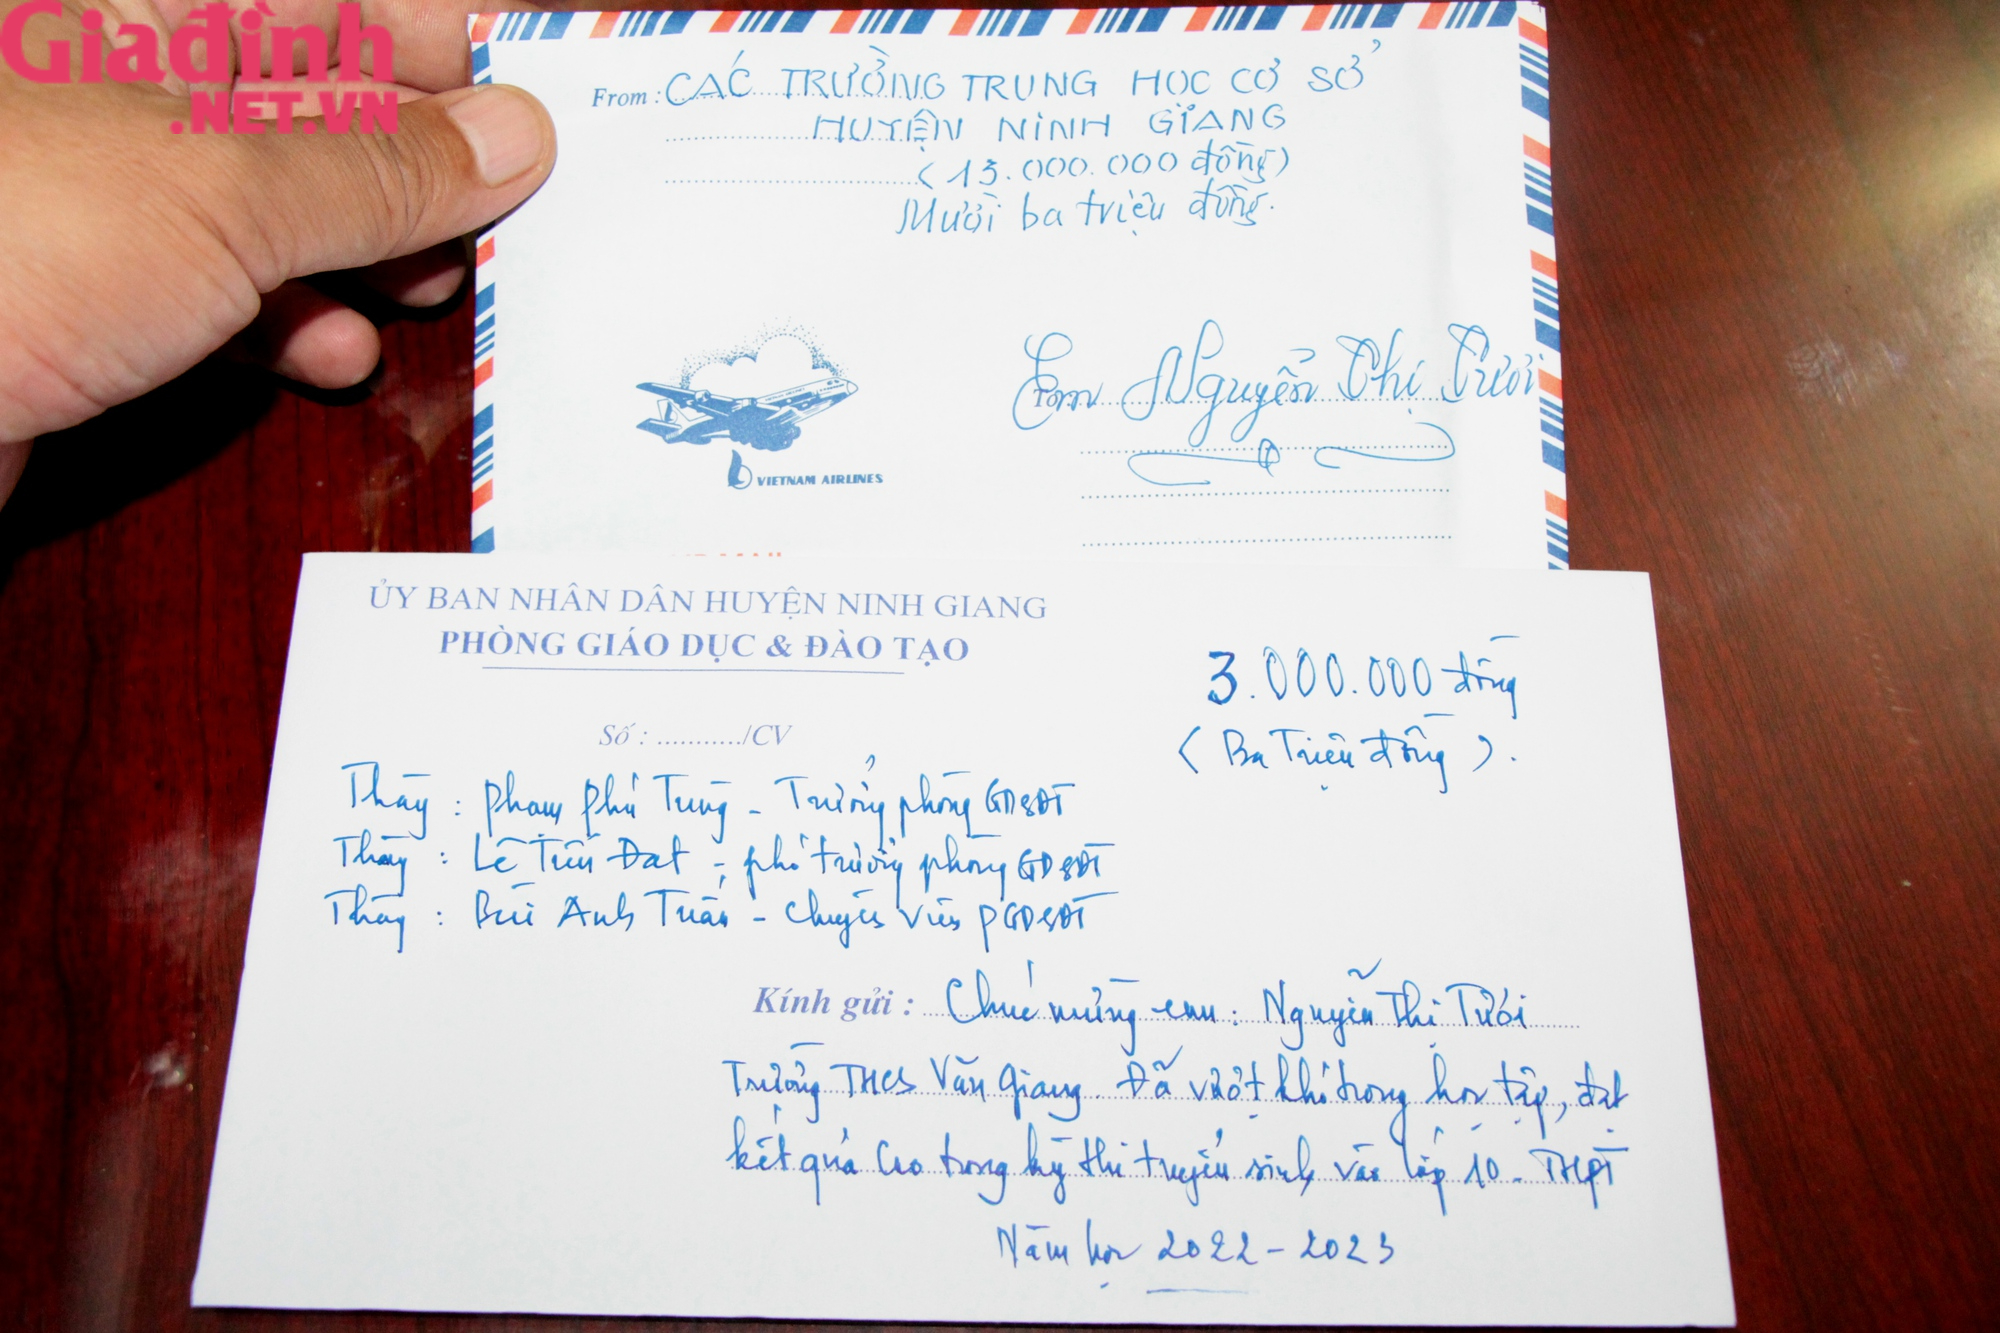 Giađình
.NET.VN
From : CÁC TRƯỜNG TRUNG HỌC CƠ SỞ
HUYỆN NINH GIANG
(13.000.000 đồng)
Mười ba triệu đồng.
Em Nguyễn Thị Tươi
VIETNAM AIRLINES
ỦY BAN NHÂN DÂN HUYỆN NINH GIANG
PHÒNG GIÁO DỤC & ĐÀO TẠO
3.000.000 đồng
(Ba Triệu đồng).
Số : .........../CV
Thầy : Phạm Phú Tung - Trưởng phòng GD&ĐT
Thầy : Lê Tiến Đạt - phó trưởng phòng GD&ĐT
Thầy : Bùi Anh Tuấn - Chuyên viên PGD&ĐT
Kính gửi : Chúc mừng em: Nguyễn Thị Tươi
Trường THCS Văn Giang. Đã vượt khó trong học tập, đạt
kết quả cao trong kỳ thi tuyển sinh vào lớp 10 - THPT
Năm học 2022-2023